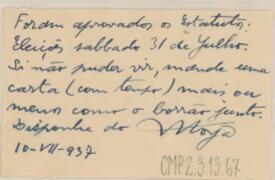 Foram aprovados os Estatutos:
Eleições sabbado 31 de Julho.
Si não puder vir, mande uma
carta (com tempo) mais ou
menos como o borrão junto.
Disponha do Moya
10-VII-937
CMP2.3.13.67